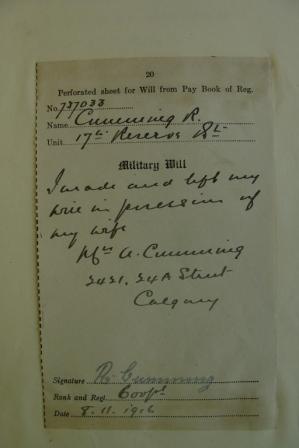 20
Perforated sheet for Will from Pay Book of Reg.
No. 737033
Name Cumming R.
Unit 17th Reserve Bt.
Military Will
I made and left my
will in possession of
my wife
Mrs A. Cumming
2421, 24A Street
Calgary
Signature R. Cumming
Rank and Reg.
Date 8.11.1916